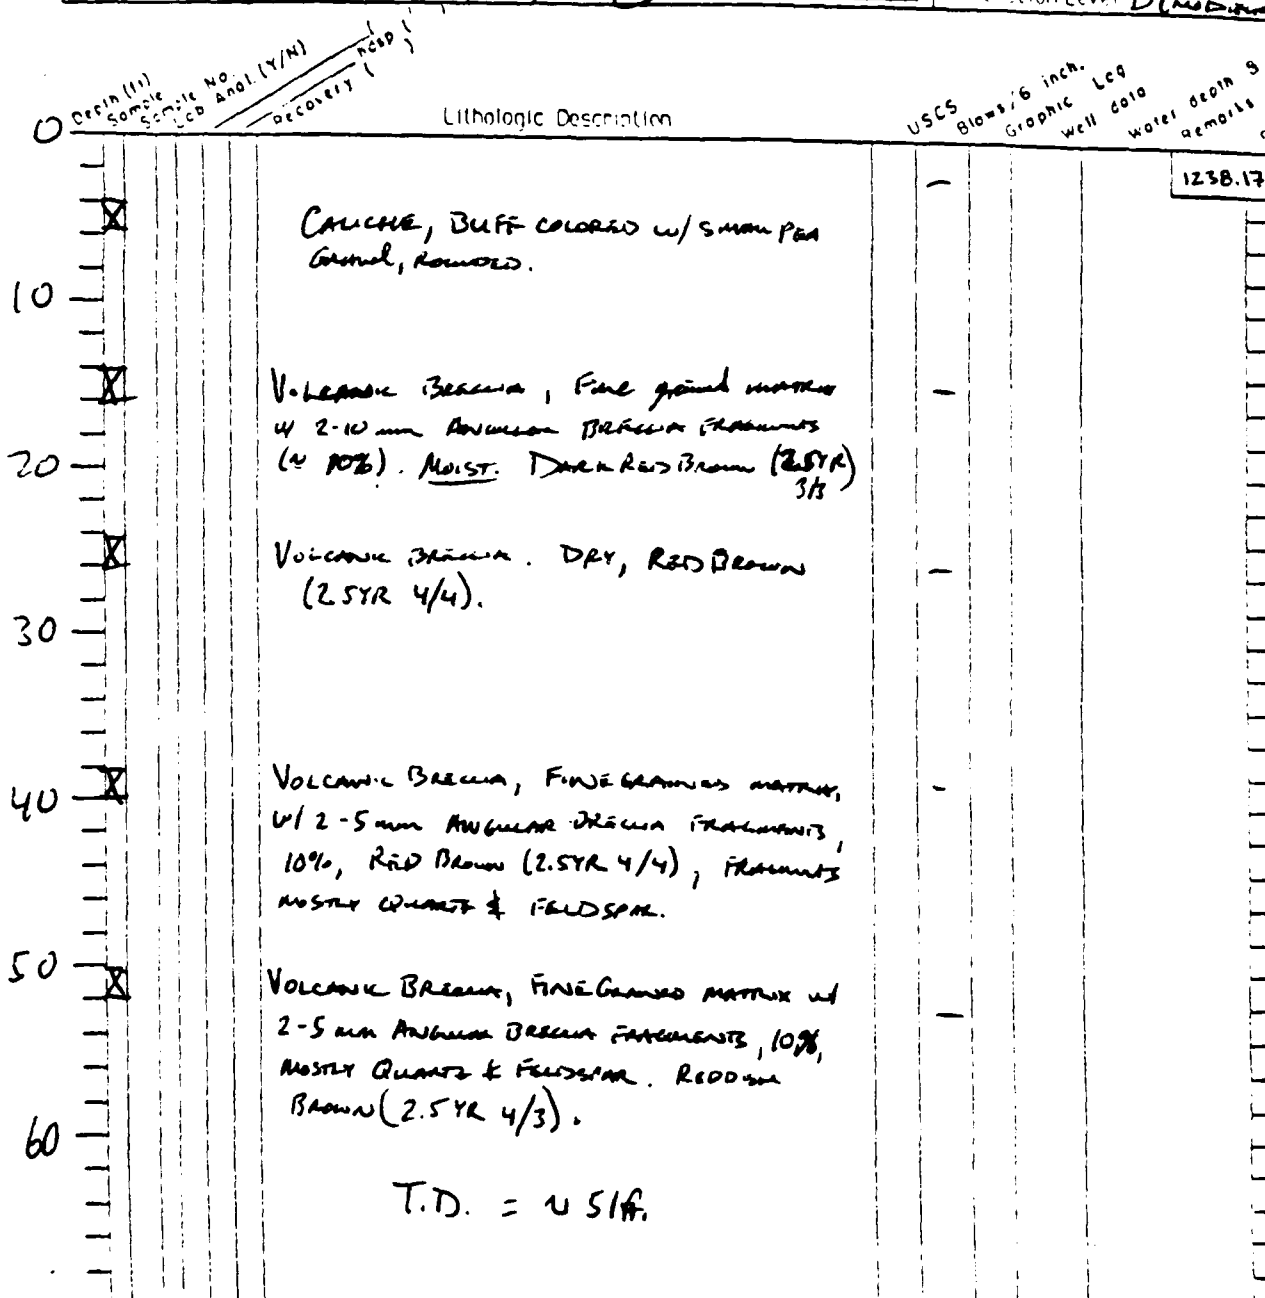 Depth (ft)
Sample
Sample No.
Lab Anal. (Y/N)
Recovery (
Lithologic Description
USCS
Blows/6 inch.
Graphic Log
Well data
Water depth
Remarks
0
1238.17
CALICHE, BUFF COLORED w/ SMALL PEA
GRAVEL, ROUNDED.
10
VOLCANIC BRECCIA, FINE grained MATRIX
w/ 2-10 mm ANGULAR BRECCIA FRAGMENTS
(~ 10%). MOIST. DARK RED BROWN (2.5YR)
3/3
20
VOLCANIC BRECCIA. DRY, RED BROWN
(2.5YR 4/4).
30
VOLCANIC BRECCIA, FINE GRAINED MATRIX,
w/ 2-5 mm ANGULAR BRECCIA FRAGMENTS,
40
10%, RED BROWN (2.5YR 4/4), FRAGMENTS
MOSTLY QUARTZ & FELDSPAR.
50
VOLCANIC BRECCIA, FINE GRAINED MATRIX w/
2-5 mm ANGULAR BRECCIA FRAGMENTS, 10%,
MOSTLY QUARTZ & FELDSPAR. REDDISH
BROWN (2.5 YR 4/3).
60
T.D. = ~ 51 ft.